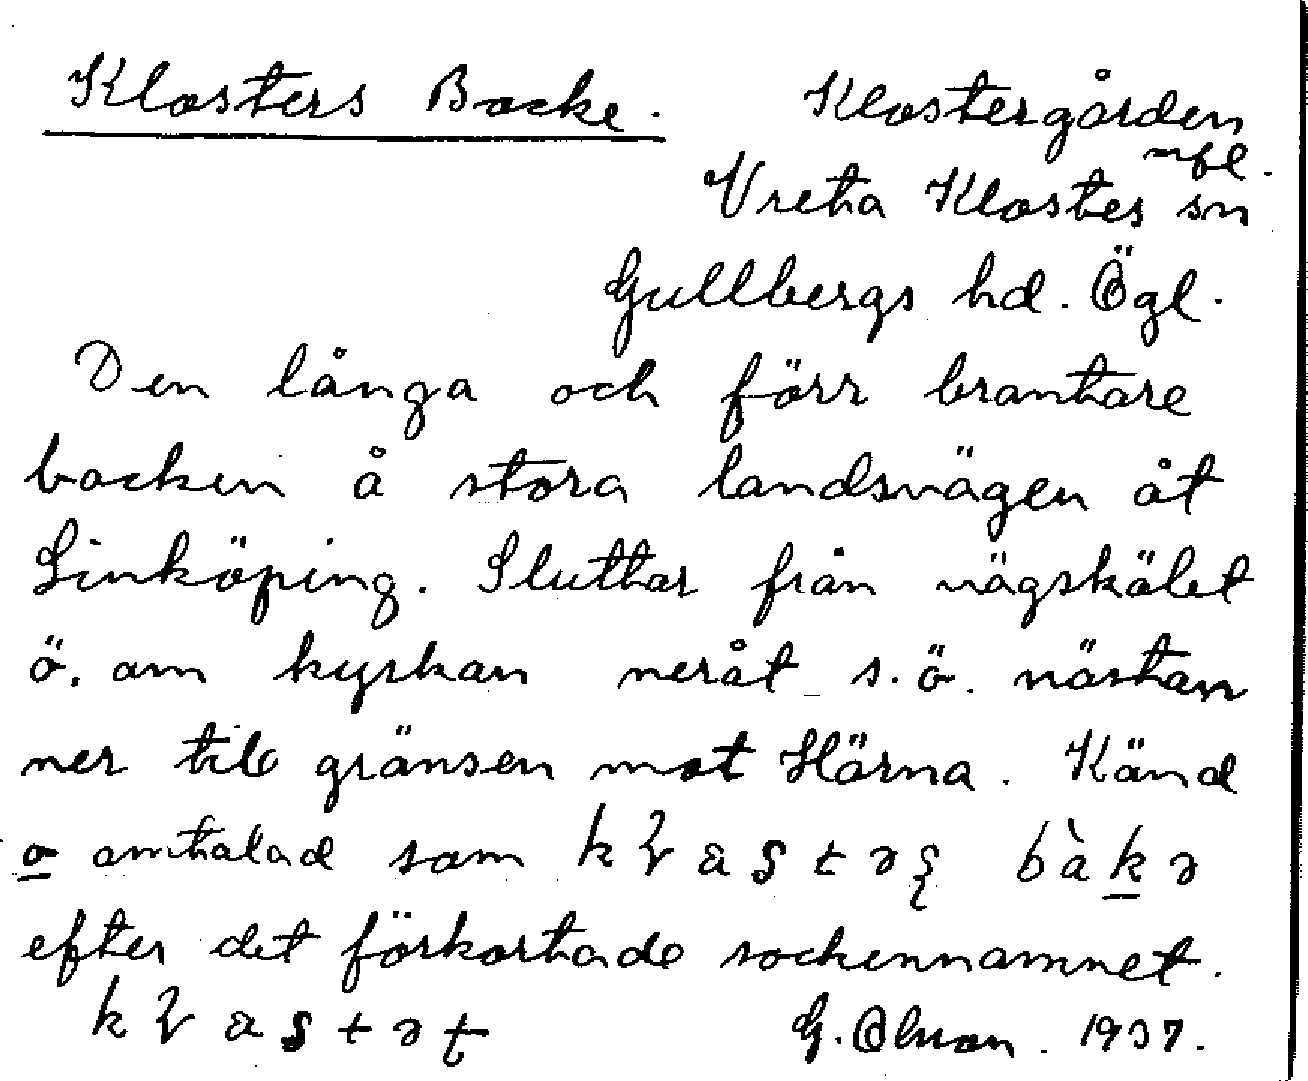 Klosters Backe. Klostergården
mfl.
Vreta Klosters sn
Gullbergs hd. Ögl.
Den långa och förr brantare
backen å stora landsvägen åt
Linköping. Sluttar från vägskälet
ö. om kyrkan neråt s.ö. nästan
ner till gränsen mot Härna. Känd
o omtalad som
efter det förkortade sockennamnet.
G. Olsson. 1937.